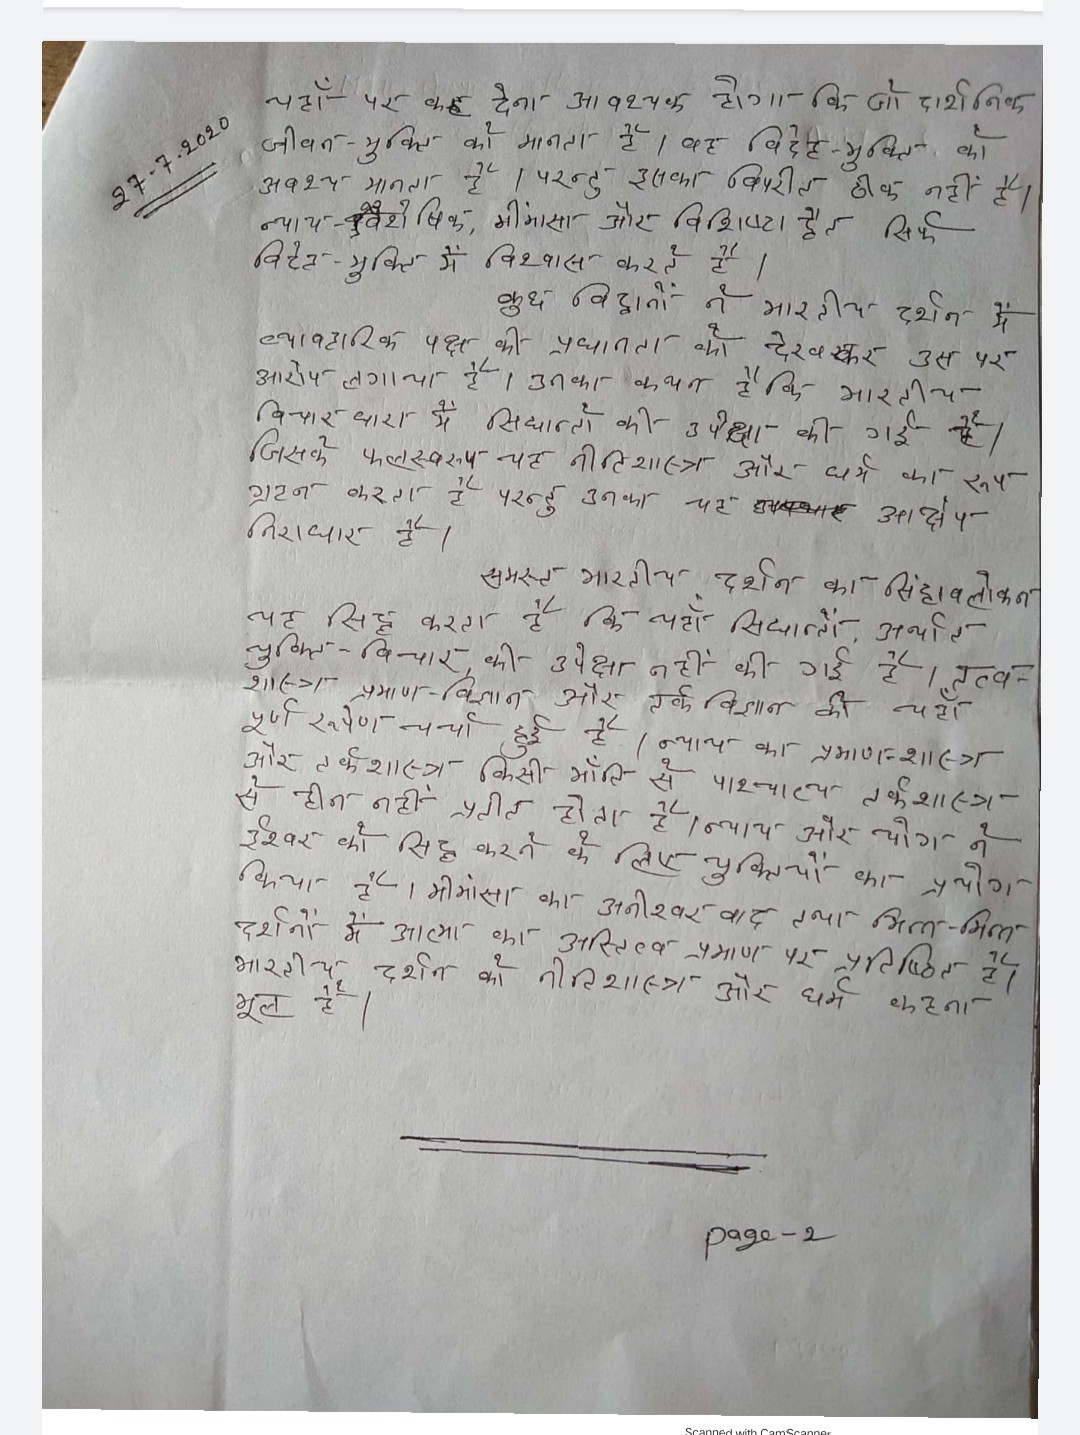 27.7.2020
यहाँ पर कह देना आवश्यक होगा कि जो दार्शनिक
जीवन-मुक्ति को मानता है। वह विदेह-मुक्ति को
अवश्य मानता है। परन्तु इसका विपरीत ठीक नहीं है।
न्याय-वैशेषिक, मीमांसा और विशिष्टा द्वैत सिर्फ
विदेह-मुक्ति में विश्वास करते है।
कुछ विद्वानों ने भारतीय दर्शन में
व्यावहारिक पक्ष की प्रधानता को देखकर उस पर
आरोप लगाया है। उनका कथन है कि भारतीय
विचार धारा में सिधान्तो की उपेक्षा की गई है।
जिसके फलस्वरूप यह नीतिशास्त्र और धर्म का रूप
ग्रहन करता है परन्तु उनका यह आक्षेप
निराधार है।
समस्त भारतीय दर्शन का सिंहावलोकन
यह सिद्ध करता है कि यहाँ सिधान्तों, अर्थात
युक्ति-विचार, की उपेक्षा नहीं की गई है। तत्व-
शास्त्र प्रमाण-विज्ञान और तर्क विज्ञान की यहाँ
पूर्ण रूपेण चर्चा हुई है। न्याय का प्रमाण-शास्त्र
और तर्कशास्त्र किसी भाँति से पाश्चात्य तर्कशास्त्र
से हीन नहीं प्रतीत होता है। न्याय और योग ने
ईश्वर को सिद्ध करने के लिए युक्तियों का प्रयोग
किया है। मीमांसा का अनीश्वर वाद तथा भिन्न-भिन्न
दर्शनों में आत्मा का अस्तित्व प्रमाण पर प्रतिष्ठित है।
भारतीय दर्शन को नीतिशास्त्र और धर्म कहना
भूल है।
page-2
Scanned with CamScanner